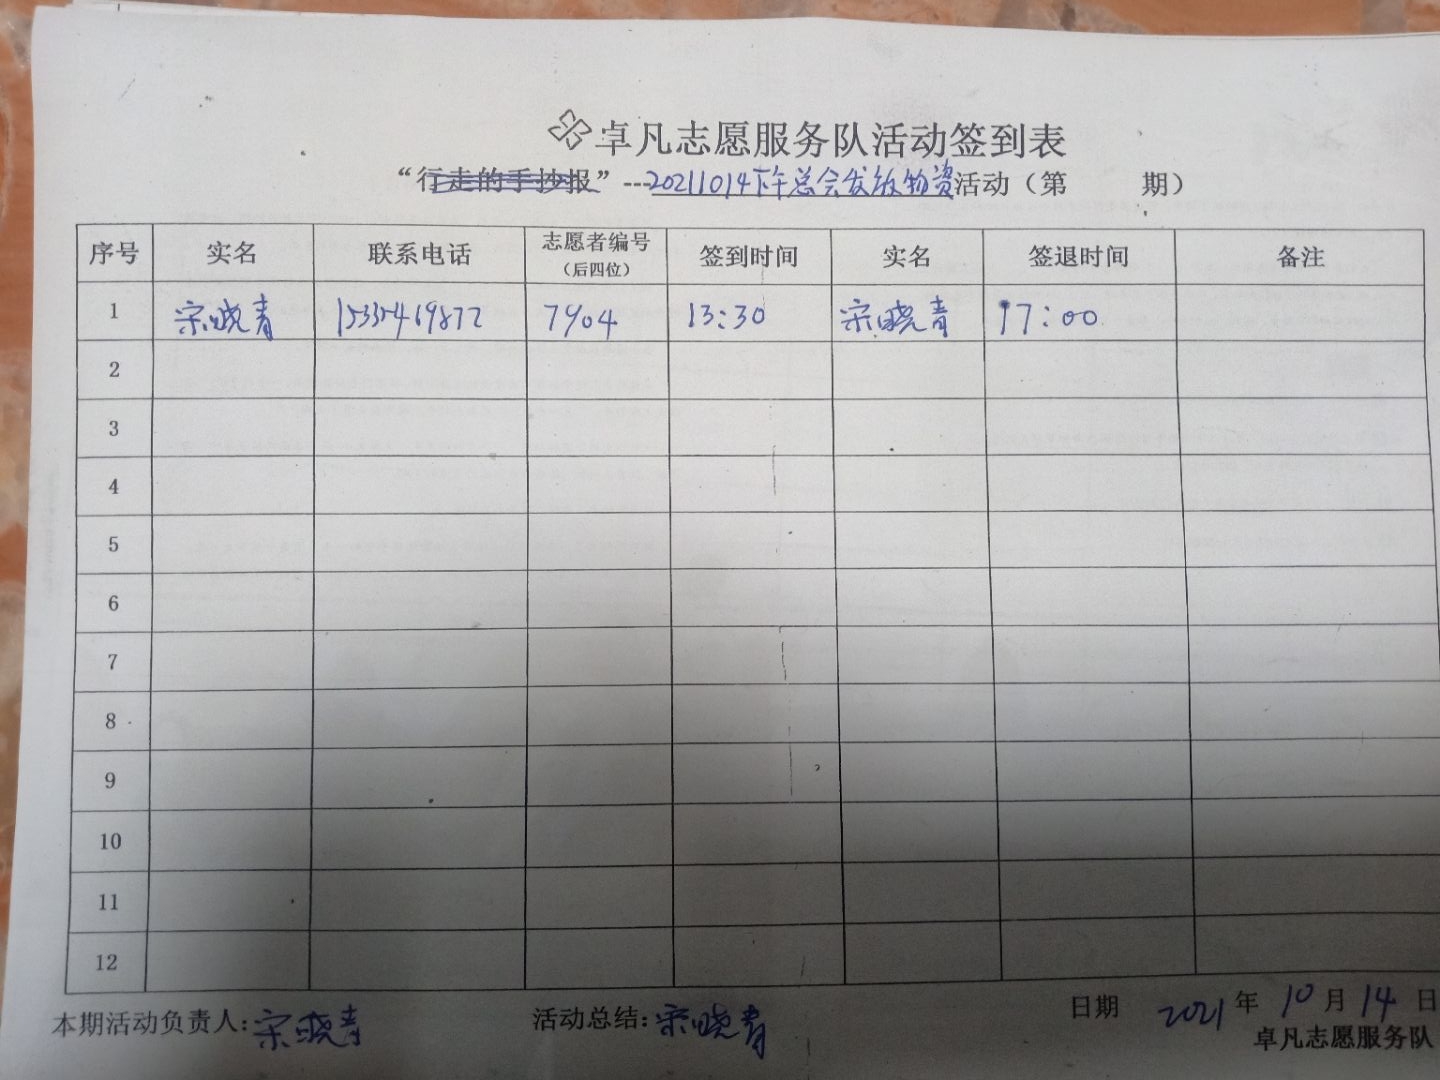 卓凡志愿服务队活动签到表
“行走的手抄报”---20211014下午总会发放物资活动（第 期）
序号 实名 联系电话 志愿者编号（后四位） 签到时间 实名 签退时间 备注
1 宋晓青 15335469877 7904 13:30 宋晓青 17:00
2
3
4
5
6
7
8
9
10
11
12
本期活动负责人:宋晓青 活动总结:宋晓青 日期 2021年10月14日
卓凡志愿服务队